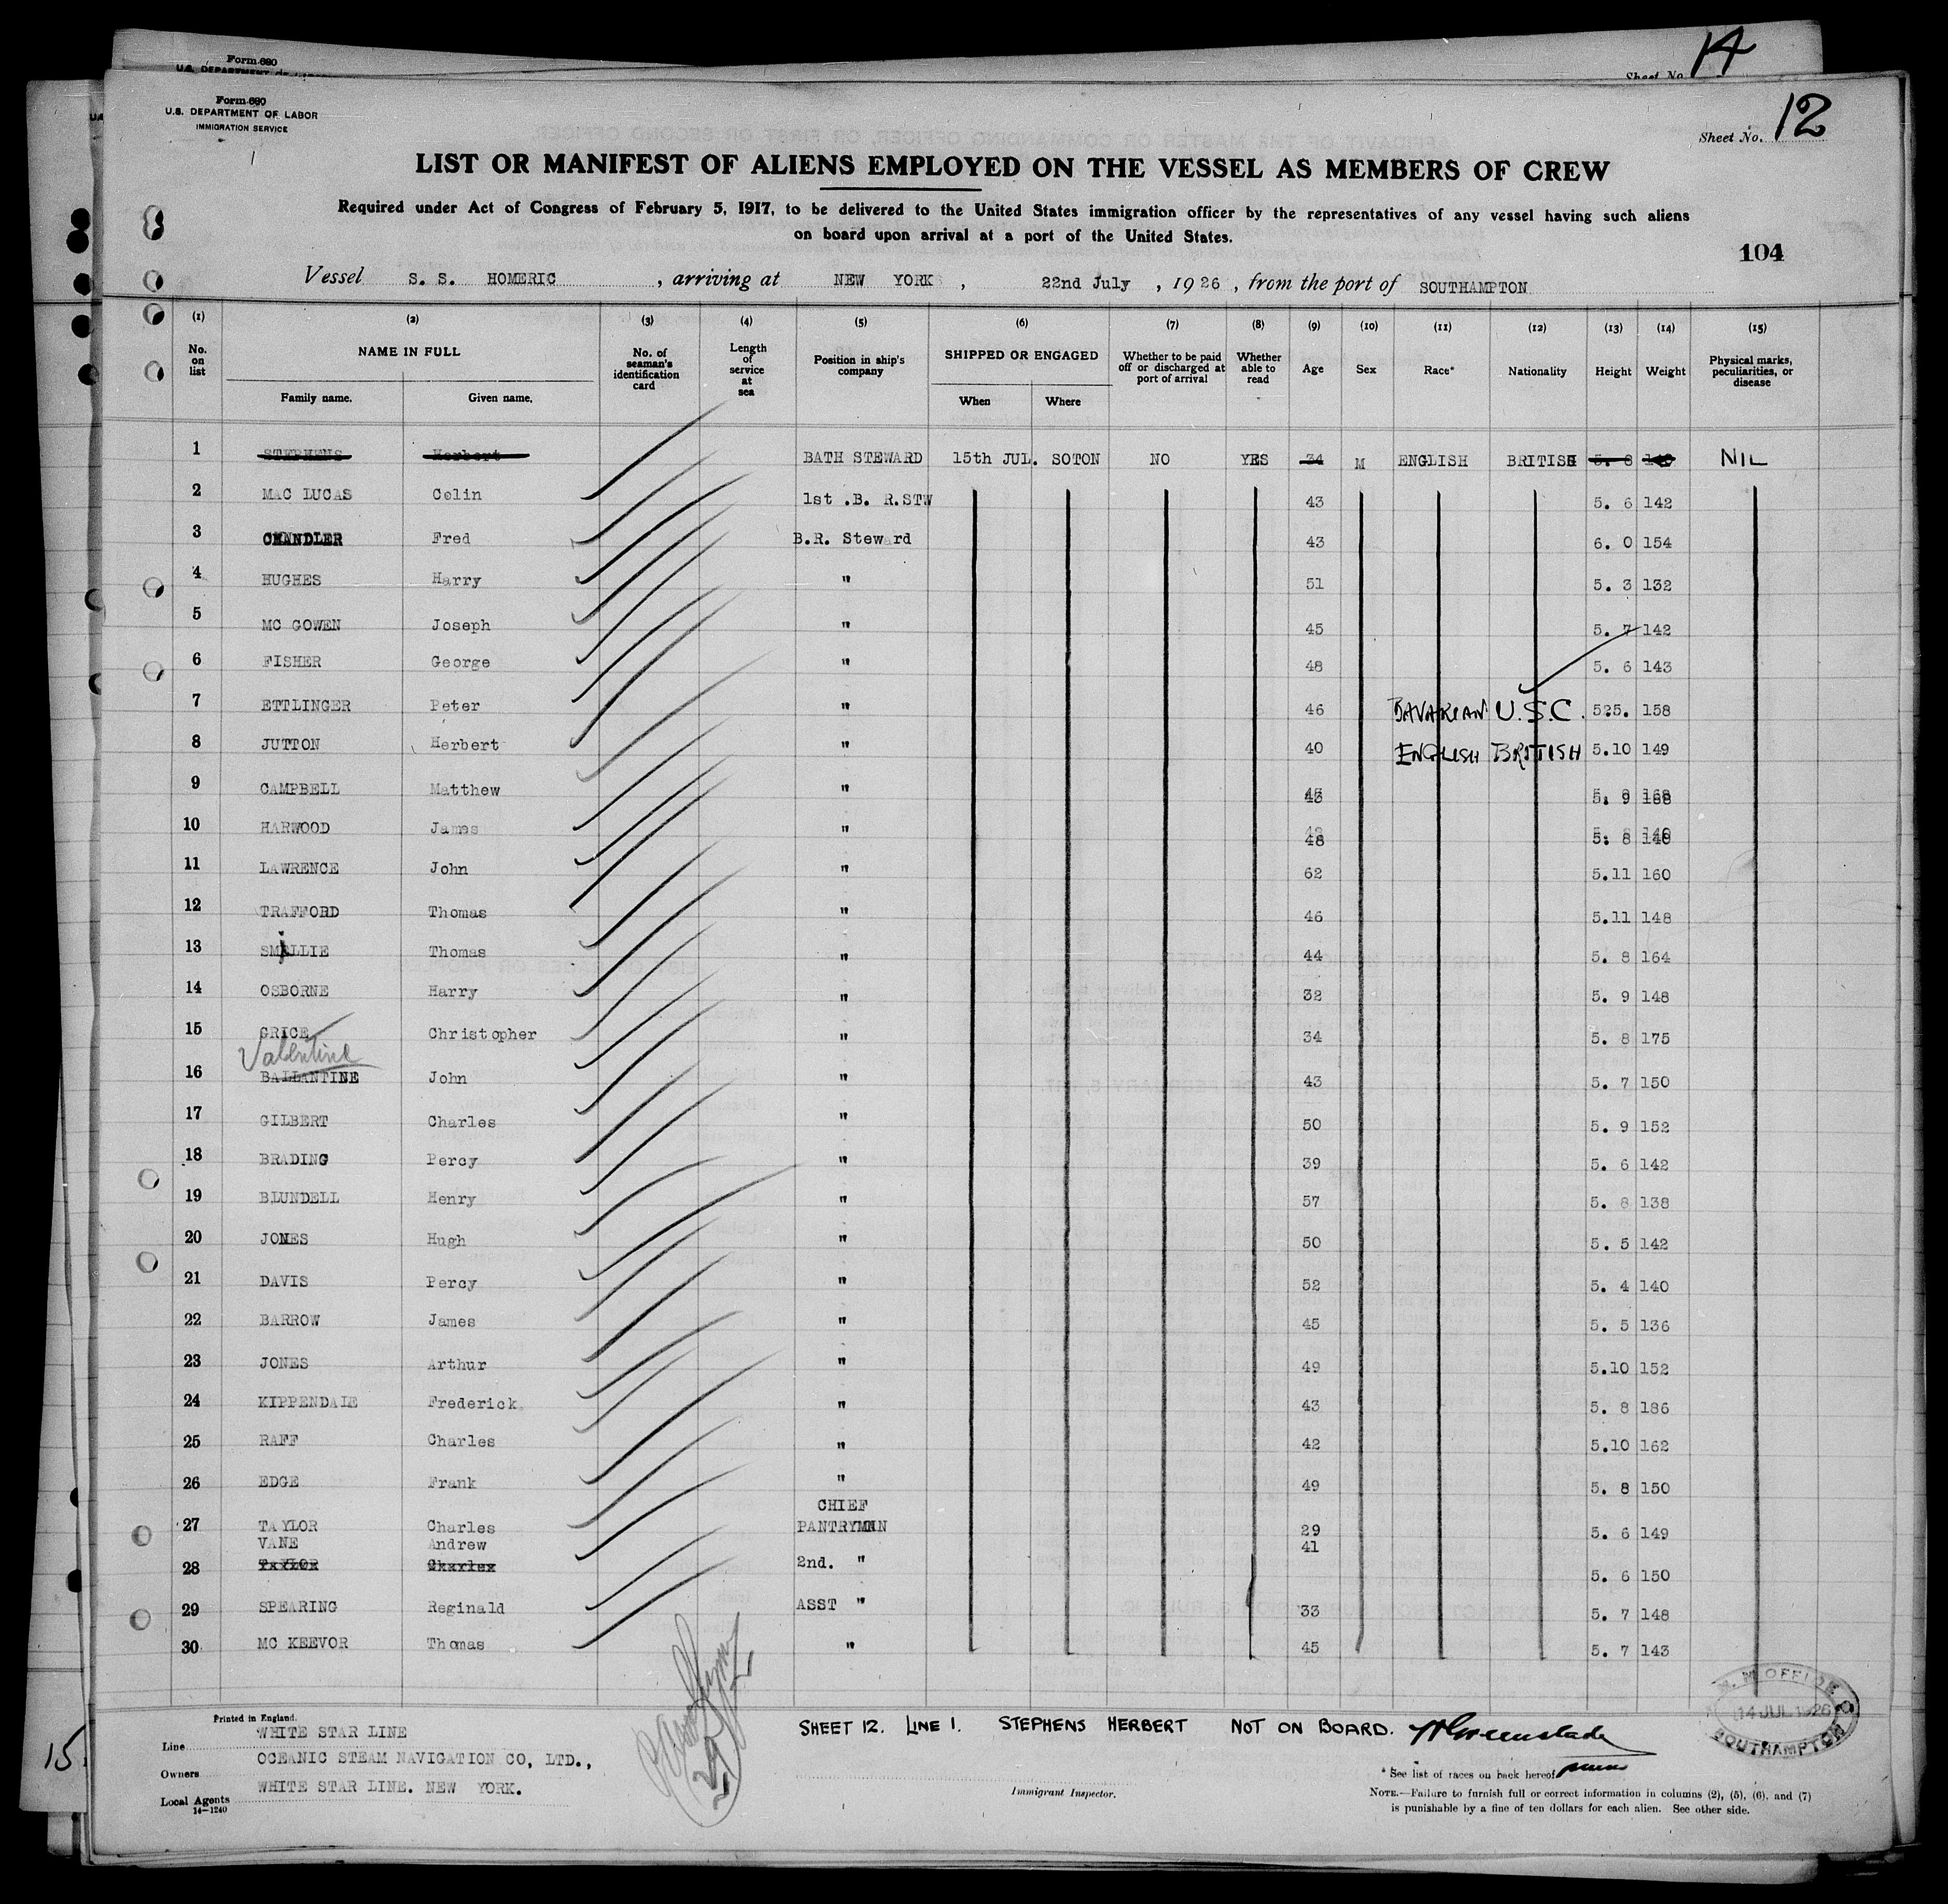 Form 680
U.S. DEPARTMENT OF LABOR
Sheet No. 14
Form 680
U.S. DEPARTMENT OF LABOR
IMMIGRATION SERVICE
Sheet No. 12
LIST OR MANIFEST OF ALIENS EMPLOYED ON THE VESSEL AS MEMBERS OF CREW
Required under Act of Congress of February 5, 1917, to be delivered to the United States immigration officer by the representatives of any vessel having such aliens
on board upon arrival at a port of the United States.
104
Vessel S. S. HOMERIC , arriving at NEW YORK , 22nd July , 1926 , from the port of SOUTHAMPTON
(1) (2) (3) (4) (5) (6) (7) (8) (9) (10) (11) (12) (13) (14) (15)
No. on list NAME IN FULL Family name. Given name. No. of seaman's identification card Length of service at sea Position in ship's company SHIPPED OR ENGAGED When Where Whether to be paid off or discharged at port of arrival Whether able to read Age Sex Race* Nationality Height Weight Physical marks, peculiarities, or disease
1 STEPHENS Herbert BATH STEWARD 15th JUL. SOTON NO YES 34 M ENGLISH BRITISH 5. 8 140 NIL
2 MAC LUCAS Colin 1st .B. R.STW 43 5. 6 142
3 CHANDLER Fred B.R. Steward 43 6. 0 154
4 HUGHES Harry " 51 5. 3 132
5 MC GOWEN Joseph " 45 5. 7 142
6 FISHER George " 48 5. 6 143
7 ETTLINGER Peter " 46 BAVARIAN U.S.C. 525. 158
8 JUTTON Herbert " 40 ENGLISH BRITISH 5.10 149
9 CAMPBELL Matthew " 45 5. 9 168
10 HARWOOD James " 48 5. 8 140
11 LAWRENCE John " 62 5.11 160
12 TRAFFORD Thomas " 46 5.11 148
13 SMILLIE Thomas " 44 5. 8 164
14 OSBORNE Harry " 32 5. 9 148
15 GRICE Christopher " 34 5. 8 175
Valentine
16 BALLANTINE John " 43 5. 7 150
17 GILBERT Charles " 50 5. 9 152
18 BRADING Percy " 39 5. 6 142
19 BLUNDELL Henry " 57 5. 8 138
20 JONES Hugh " 50 5. 5 142
21 DAVIS Percy " 52 5. 4 140
22 BARROW James " 45 5. 5 136
23 JONES Arthur " 49 5.10 152
24 KIPPENDALE Frederick " 43 5. 8 186
25 RAFF Charles " 42 5.10 162
26 EDGE Frank " 49 5. 8 150
CHIEF
27 TAYLOR Charles PANTRYMAN 29 5. 6 149
VANE Andrew 41
28 TAYLOR Charles 2nd. " 5. 6 150
29 SPEARING Reginald ASST " 33 5. 7 148
30 MC KEEVOR Thomas " 45 5. 7 143
Printed in England.
Line WHITE STAR LINE
Owners OCEANIC STEAM NAVIGATION CO, LTD.,
Local Agents WHITE STAR LINE. NEW YORK.
14-1240
SHEET 12. LINE 1. STEPHENS HERBERT NOT ON BOARD.
Immigrant Inspector.
* See list of races on back hereof
NOTE.—Failure to furnish full or correct information in columns (2), (5), (6), and (7)
is punishable by a fine of ten dollars for each alien. See other side.
M. M. OFFICE
14 JUL 1926
SOUTHAMPTON
15.